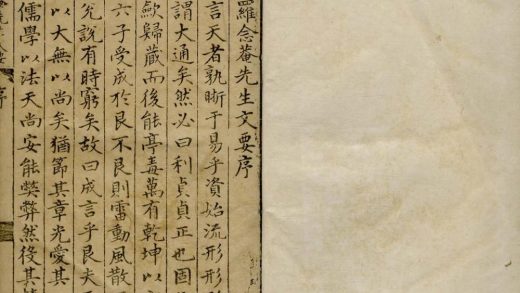 羅念菴先生文要序
言天者孰晰于易乎資始流形形
謂大通矣然必曰利貞貞正也固
歛歸藏而後能亭毒萬有乾坤以
六子受成於艮不艮則雷動風散
兊說有時窮矣故曰成言乎艮夫
以大無以尚矣猶節其章光愛其
儒學以法天尚安能獘獘然役其
序